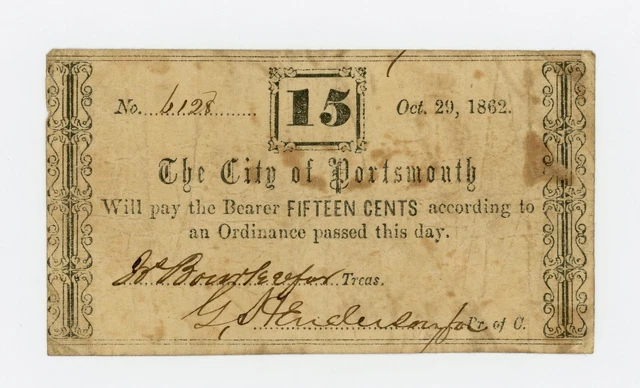 No. 6128 15 Oct. 29, 1862.
The City of Portsmouth
Will pay the Bearer FIFTEEN CENTS according to
an Ordinance passed this day.
for Treas.
G. Henderson for Pr. of C.